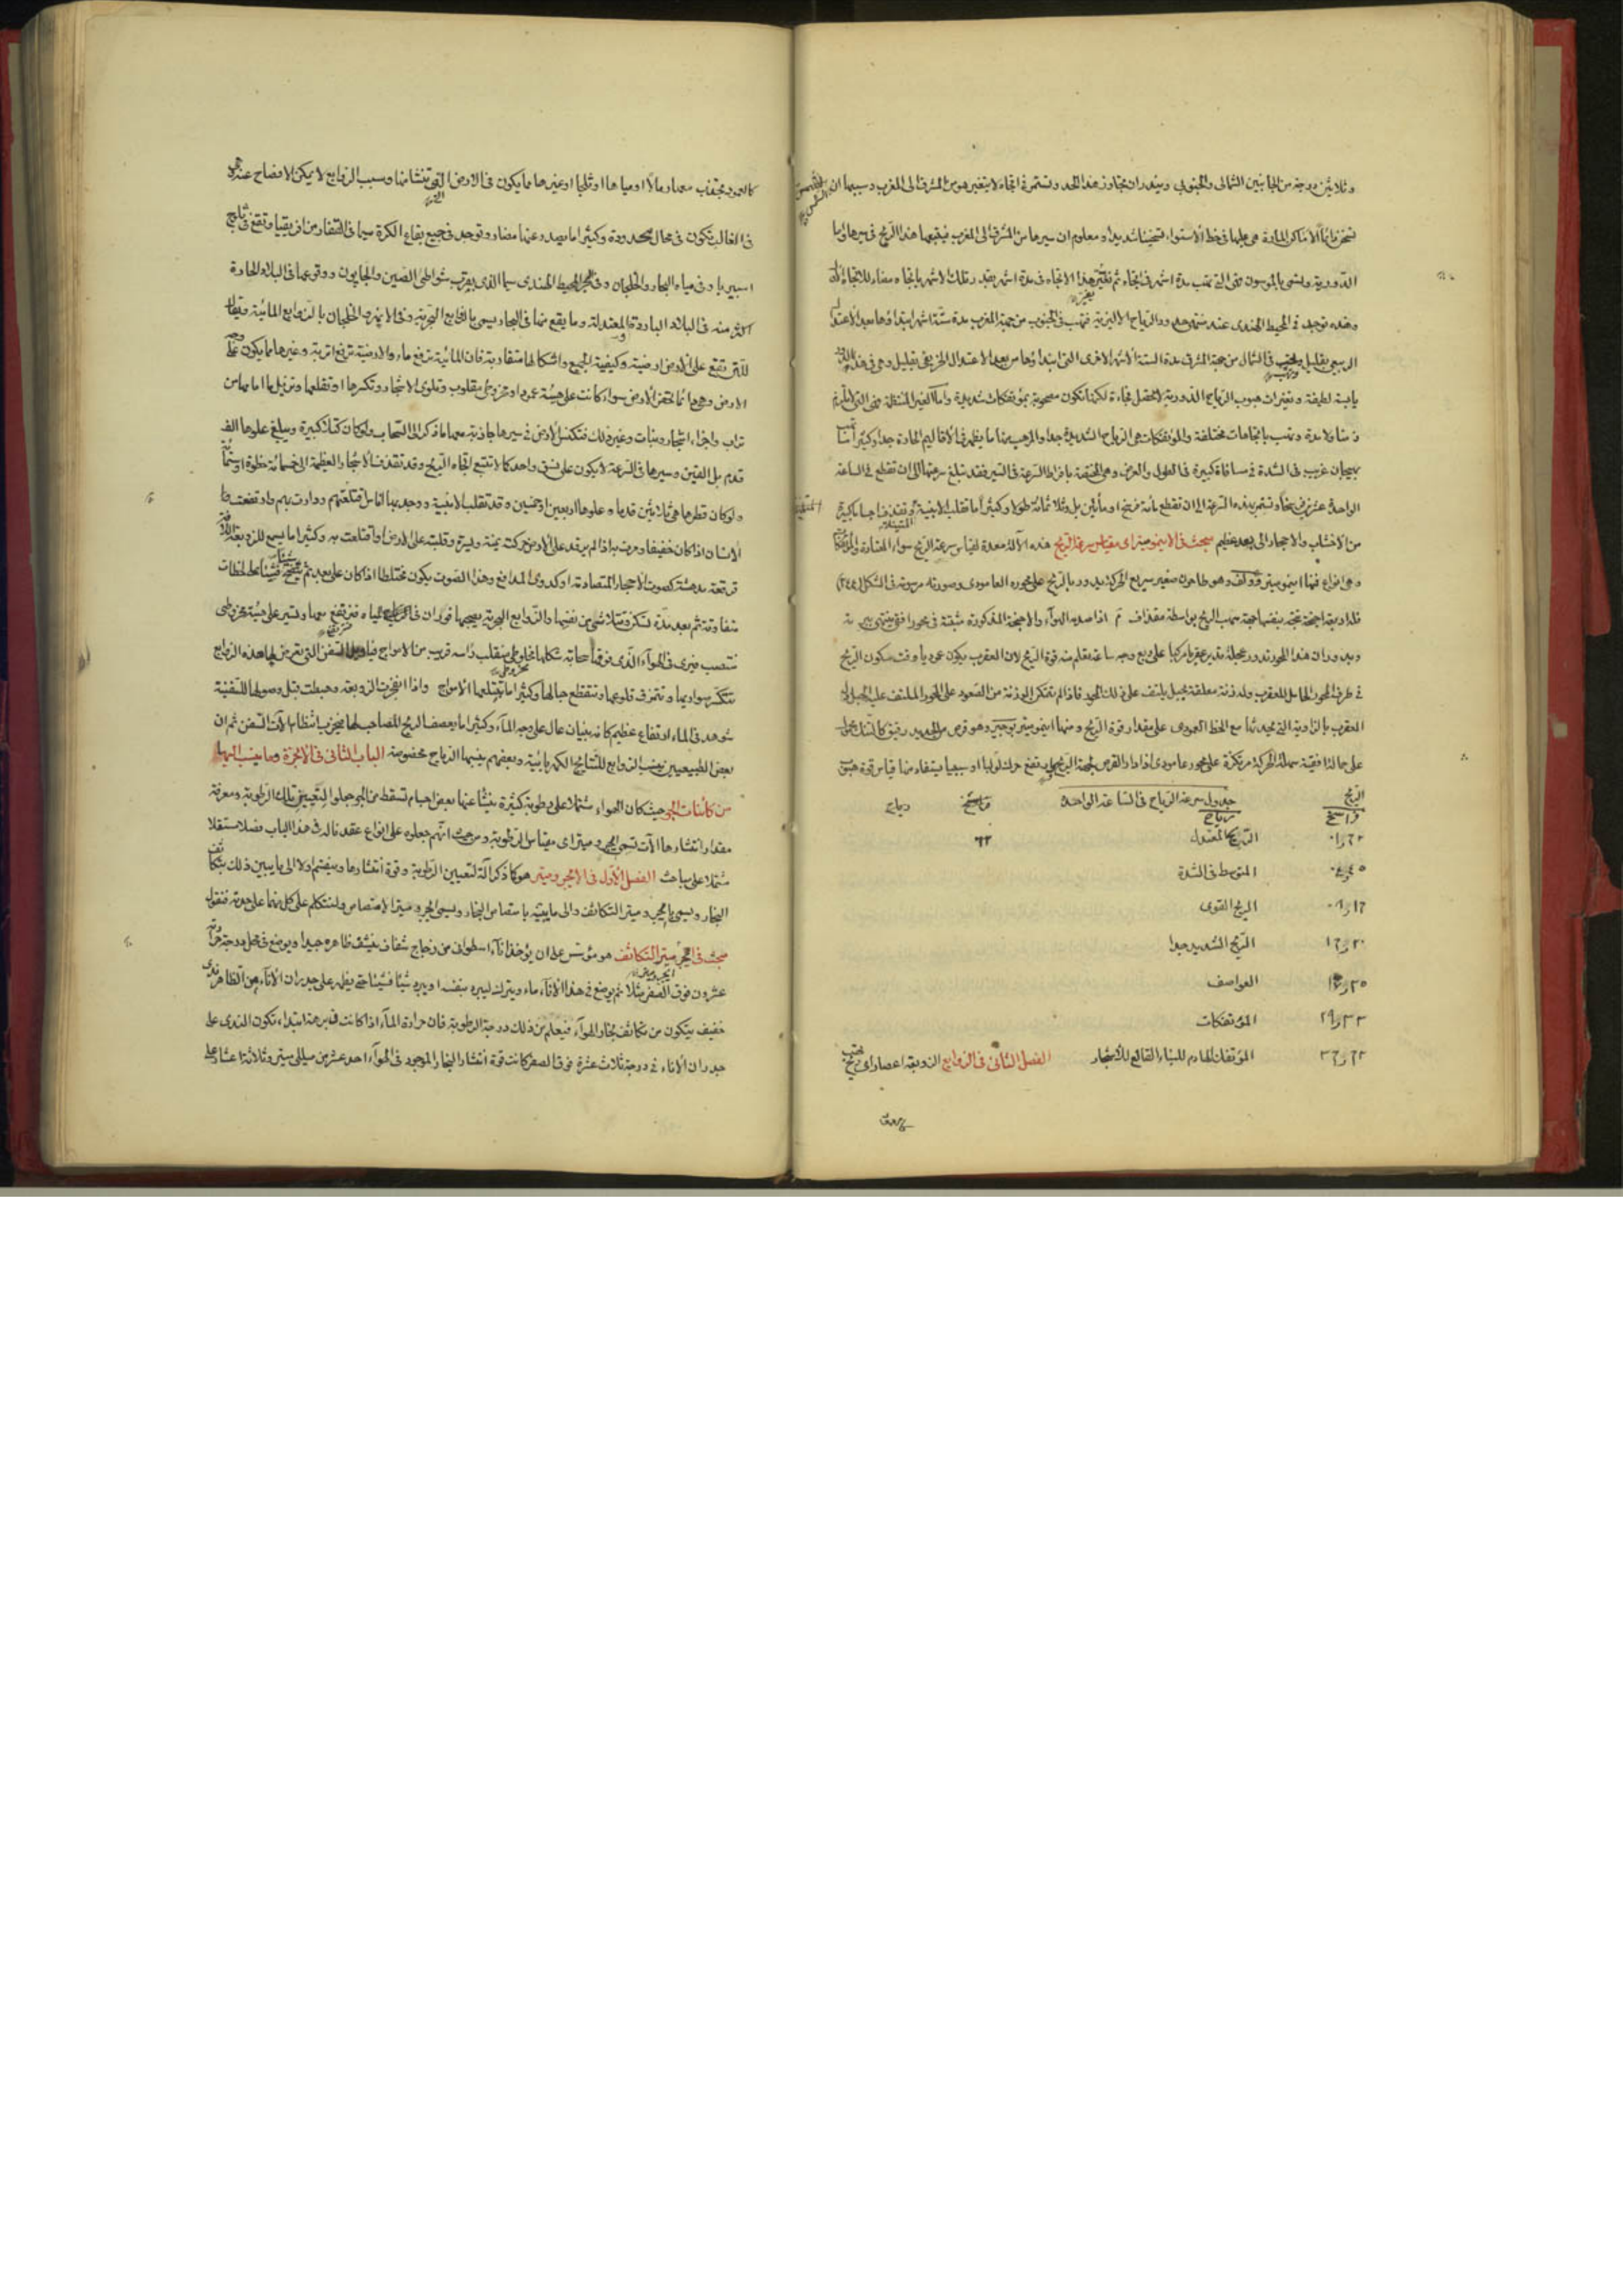 وثلاثين درجة من الجانبين الشمالى والجنوبى ويندران تتجاوز هذا الحد وتستمر فى اتجاه لا يتغير هو من المشرق الى المغرب وسببها ان الشمس
تسخن دائما الاماكن المارة هى عليها فى خط الاستواء تسخينا شديدا ومعلوم ان سيرها من المشرق الى المغرب فيتبعها هذا الريح فى سيرها واما
الدورية وتسمى بالموسون فهى التى تهب مدة اشهر فى اتجاه ثم يتغير هذا الاتجاه فى مدة اشهر بقدر تلك الاشهر باتجاه مضاد للاتجاه الاول
وهذه توجد فى المحيط الهندى عند منتهى حدود الرياح الاليزية فتهب فى الجنوب من جهة المغرب مدة ستة اشهر ابتداؤها بعد الاعتدال
الربيعى بقليل وتهب فى الشمال من جهة المشرق مدة الستة الاشهر الاخرى التى ابتداؤها من بعد الاعتدال الخريفى بقليل وهى فى هذه
يابسة لطيفة وتغيرات هبوب الرياح الدورية لا تحصل فجاءة لكنها تكون مصحوبة بمؤتفكات شديدة واما الغير المنتظمة فهى التى لا تلزم
زمنا ولا مدة وتهب باتجاهات مختلفة والمؤتفكات هى الرياح الشديدة جدا والرهيب منها ما يظهر فى الاقاليم الحارة جدا وكثيرا ما
بهيجان غريب فى الشدة فى مسافاة كبيرة فى الطول والعرض وهى المختصة بافراط السرعة فى السير فقد تبلغ سرعتها الى ان تقطع فى الساعة
الواحدة عشرين فرسخا وتستمر بهذه السرعة الى ان تقطع مائة فرسخ او مائتين بل وثلاثمائة طولا وكثيرا ما تقلب الابنية وتقذف اجساما كبيرة
من الاخشاب والاحجار الى بعد عظيم مبحث فى الانيمومتر اى مقياس سرعة الريح هذه الآلة معدة لقياس سرعة الريح سواء المعتادة والمؤتفكات
وهى انواع فمنها انيمومتر وولف وهو طاحون صغير سريع الحركة يدور بالريح على محوره العامودى وصورته مرسومة فى الشكل (٢٤٤)
فله اربعة اجنحة تتجه بنفسها جهة مهب الريح بواسطة مقذاف م اذا صدمه الهواء والاجنحة المذكورة مثبتة فى محور افقى ينتهى ببريمة
وبدوران هذا المحور تدور عجلة تدير عقربا مركبا على ربع وجه ساعة يعلم منه قوة الريح لان العقرب يكون عموديا وقت سكون الريح
فى طرف المحور الحامل للعقرب ولدنة معلقة بحبل يلتف على ذلك المحور فاذا لم تتمكن الموزنة من الصعود على المحور الملتف عليه الحبل
العقرب بالزاوية التى يحدثها مع الخط العمودى على مقدار قوة الريح ومنها انيمومتر بوجير وهو قرص من الحديد رفيق كالتنك محمول
على حالة افقية سهلة الحركة مرتكزة على محور عامودى اذا دار القرص لجهة الريح يدفع حركة لولبا او سببا يستفاد منها قياس قوة هبوب
الريح جدول سرعة الرياح فى الساعة الواحدة فراسخ رياح
فراسخ رياح
الريح المعتدل
المتوسط فى الشدة
الريح القوى
الريح الشديد جدا
العواصف
المؤتفكات
المؤتفك الهادم للبناء القالع للاشجار الفصل الثانى فى الزوابع الزوبعة اعصار اى ريح تهب
كالعمود تجتذب معها رمالا او مياها او ثلجا او غيرها مما يكون فى الارض التى تنشأ منها وسبب الزوابع لا يمكن الافصاح عنه وهى
فى الغالب تكون فى محال محدودة وكثيرا ما يصدر عنها مضار وتوجد فى جميع بقاع الكرة سيما فى القفار من افريقيا وتقع فى ثلج
اسيبريا وفى مياه البحار والخلجان وفى المحيط الهندى سيما الذى بقرب شواطئ الصين والجاپون ووقوعها فى البلاد الحارة
اكثر منه فى البلاد الباردة والمعتدلة وما يقع منها فى البحار يسمى بالزوابع البحرية وفى الانهر والخلجان بالزوابع المائية ويقال
للتى تقع على الارض ارضية وكيفية الجميع واشكالها متقاربة فان المائية ترفع ماء والارضية ترفع اتربة وغيرها مما يكون على وجه
الارض وهى دائما تحفر الارض سواء كانت على هيئة عمود او مخروطى مقلوب وتلوى الاشجار وتكسرها او تقلعها وتزيل ما امامها من
تراب واجزاء اشجار ونبات وغير ذلك فتكنس الارض فى سيرها جاذبة معها ما ذكر الى السحاب ولو كان كتلا كبيرة ويبلغ علوها الف
قدم بل الفين وسيرها فى السرعة لا يكون على نسق واحد كما لا تتبع اتجاه الريح وقد تقذف الاشجار العظيمة الى خمسمائة خطوة او ستمائة
ولو كان قطرها هى ثلاثين قدما وعلوها اربعين او خمسين وقد تقلب الابنية ووجد بها اناس اقتلعتهم ودارت بهم وارتفعت بها
الانسان اذا كان خفيفا ومرت به اذا لم يرقد على الارض حركت يمنة ويسرة وقلبته على الارض او اقتلعت به وكثيرا ما يسمع للزوبعة
قرقعة مدهشة كصوت الاحجار المتصادمة او كدوى المدافع وهذا الصوت يكون مختلطا اذا كان على بعد ثم يتضح شيئا فشيئا على لحظات
متفاوتة ثم بعد مدة تسكن وتتلاشى من نفسها والزوابع البحرية يصحبها فوران فى المياه فترتفع معها وتسير على هيئة مخروطى
منتصب فيرى فى الهواء الذى فوقها سحابة شكلها مخروطى منقلب رأسه قريب من الامواج فيا ويل السفن التى تعرض لها هذه الزوابع
تتكسر سواريها وتتمزق قلوعها وتتقطع حبالها وكثيرا ما تبتلعها الامواج واذا انفجرت الزوبعة وهبطت قبل وصولها للسفينة
شوهد فى الماء ارتفاع عظيم كانه بنيان عال على وجه الماء وكثيرا ما يعصف الريح المصاحب لها فيخرب انتظام آلات السفن ثم ان
بعض الطبيعيين ينسب الزوابع للنتايج الكهربائية وبعضهم ينسبها الرياح مخصوصة الباب الثانى فى الابخرة وما ينسب اليها
من كائنات الجو حيث كان الهواء مشتملا على رطوبة كثيرة ينشأ عنها بعض اجسام تسقط من الجو جعلوا لتعيين تلك الرطوبة ومعرفة
مقدار انتشارها آلات تسمى ايجرومتر اى مقياس الرطوبة ومن حيث انهم جعلوه على انواع عقدنا له فى هذا الباب فصلا مستقلا
مشتملا على مباحث الفصل الاول فى الايجرومتر هو كما ذكر آلة لتعيين الرطوبة وقوة انتشارها وينقسم اولا الى ما يبين ذلك بتكاثف
البخار ويسمى ايجرومتر التكاثف والى ما يبينه بامتصاص البخار ويسمى ايجرومتر الامتصاص ولنتكلم على كل منهما على حدته فنقول
مبحث فى ايجرومتر التكاثف هو مؤسس على ان يؤخذ اناء اسطوانى من زجاج شفاف ينشف ظاهره جيدا ويوضع فى محل درجة حرارته
عشرون فوق الصفر مثلا ثم يوضع فى هذا الاناء ماء ويترك ليبرد بنفسه او يبرد شيئا فشيئا حتى يظهر على جدران الاناء من الظاهر ندى
خفيف يتكون من تكاثف بخار الهواء فيعلم من ذلك درجة الرطوبة فان حرارة الماء اذا كانت فى برهة ابتداء تكون الندى على
جدران الاناء فى درجة ثلاث عشرة فوق الصفر كانت قوة انتشار البخار الموجود فى الهواء احد عشر من ميللى متر وثلاثة اعشار على